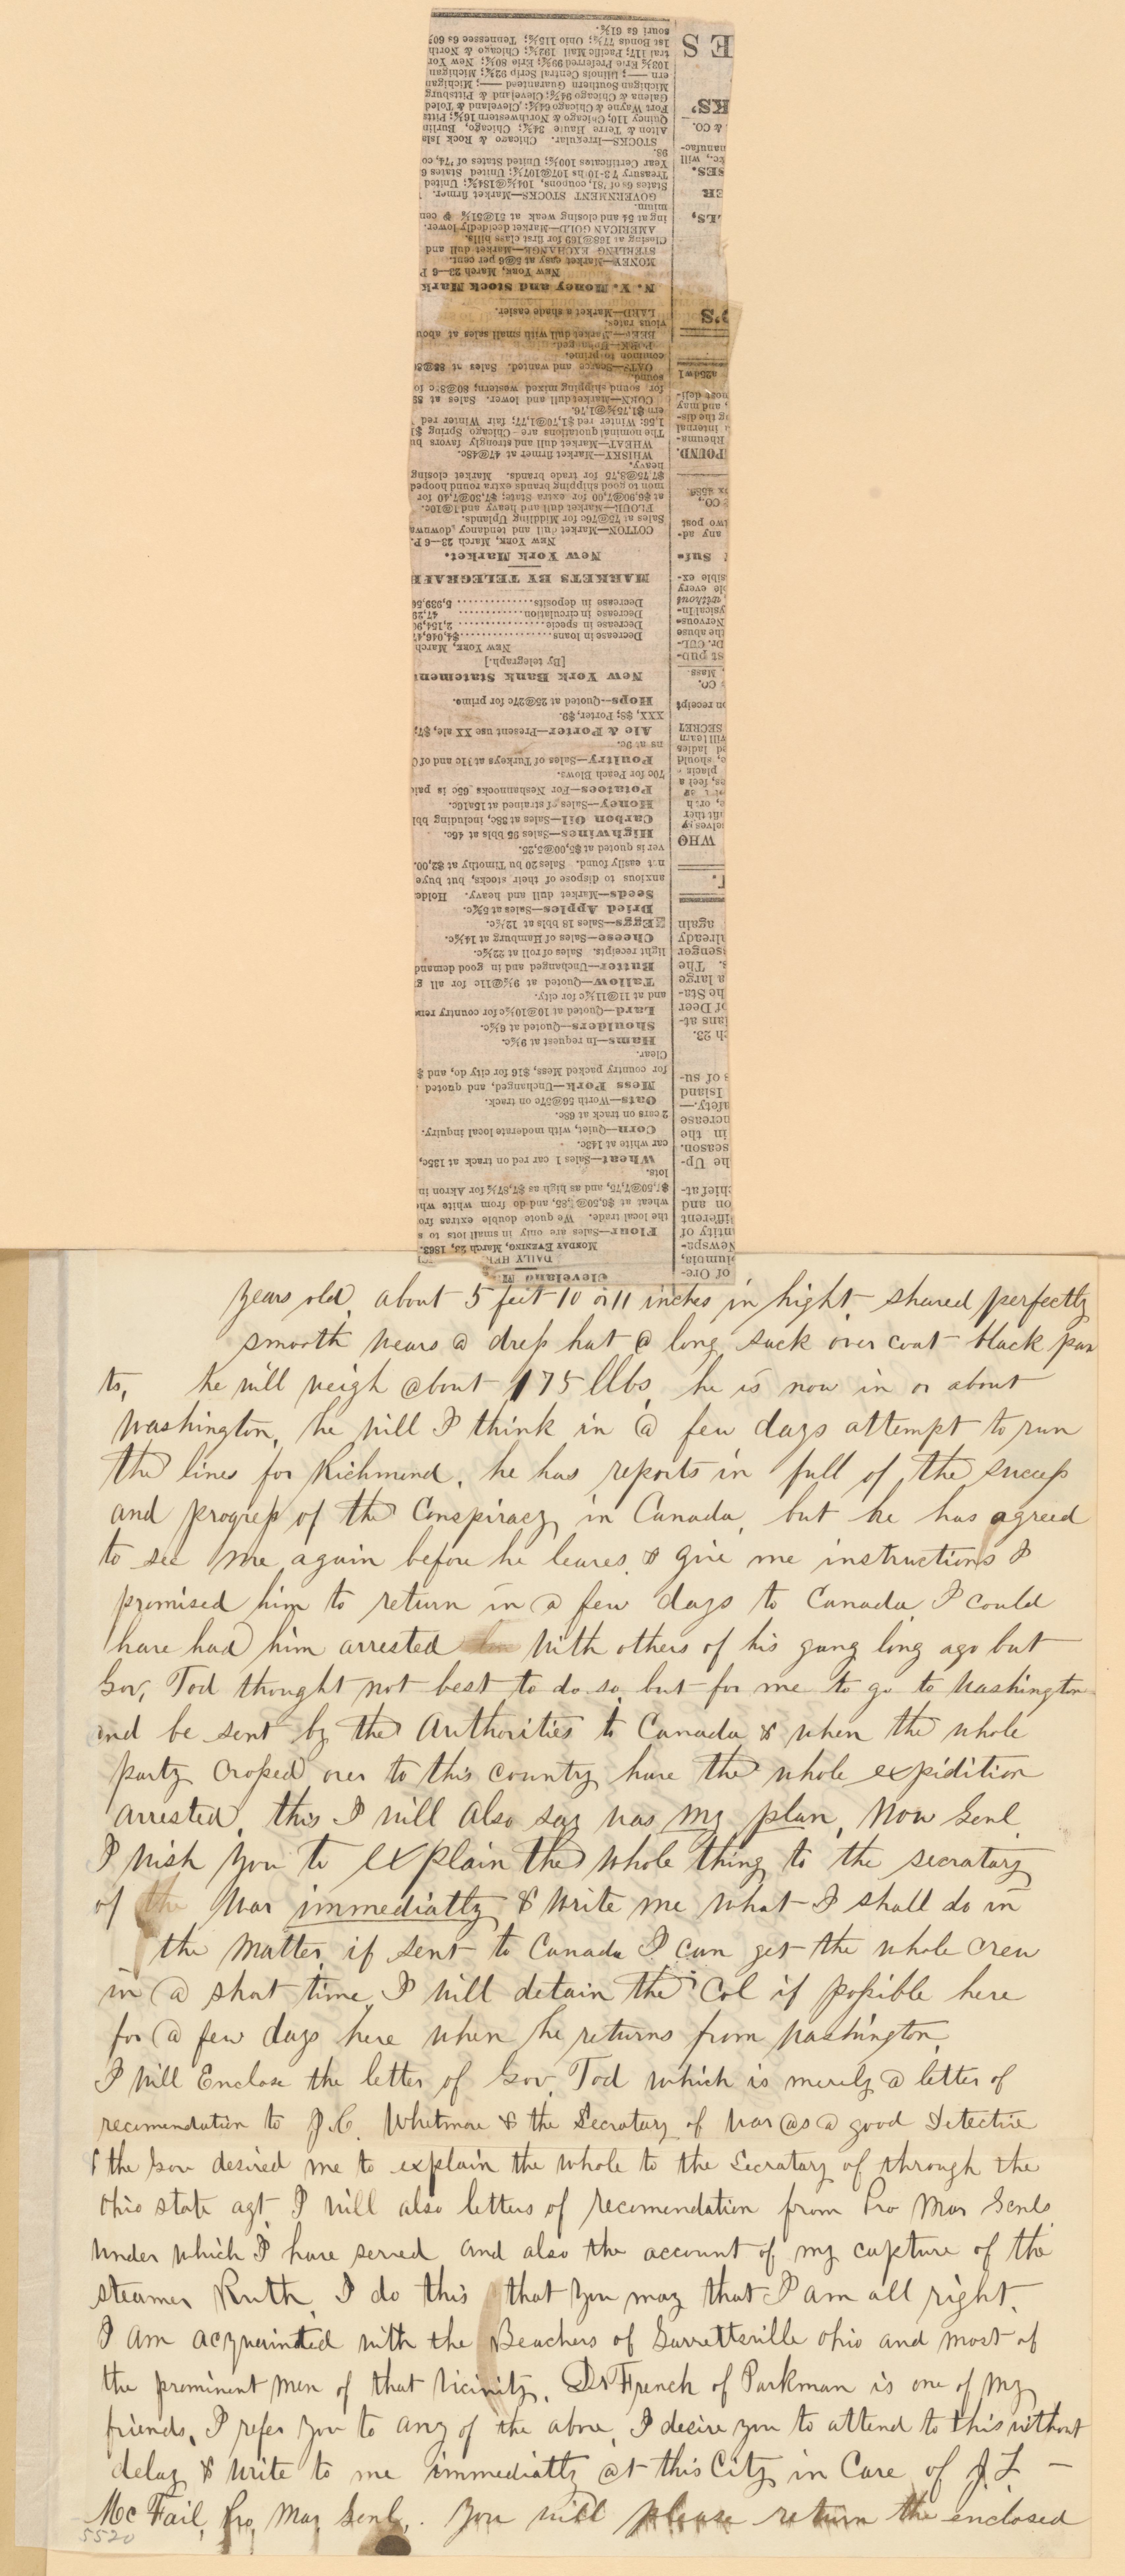 of Ore-
lumbia,
Newspa-
ntity of
different
on and
chief at-
he Up-
season.
in the
ncrease
afety.—
Island
s of su-
ch 23.
ians at-
of Deer
he Sta-
a large
s. The
senger
already
again
WHO
on receipt
CO.
Mass.
st pub-
Dr. CUL-
the abuse
Nervous-
ysical In-
without
ble every
sible ex-
Suf-
any ad-
two post
CO.,
POUND.
Rheuma-
internal
g the dis-
, and may
nost deli-
a25dw1
P'S
LS,
ER
SES.
&c., will
nanufac-
& CO.
KS'
ES
Cleveland M
DAILY HER
MONDAY EVENING, March 23, 1863.
Flour—Sales are only in small lots to s
the local trade. We quote double extras fro
wheat at $6,50@6,85, and do from white whe
$7,50@7,75, and as high as $7,87½ for Akron in
lots.
Wheat—Sales 1 car red on track at 135c,
car white at 143c.
Corn—Quiet, with moderate local inquiry.
2 cars on track at 68c.
Oats—Worth 56@57c on track.
Mess Pork—Unchanged, and quoted
for country packed Mess, $16 for city do, and $
Clear.
Hams—In request at 9½c.
Shoulders—Quoted at 6½c.
Lard—Quoted at 10@10½c for country rend
and at 11@11½c for city.
Tallow—Quoted at 9½@11c for all g
Butter—Unchanged and in good demand
light receipts. Sales of roll at 22½c.
Cheese—Sales of Hamburg at 14½c.
Eggs—Sales 18 bbls at 12½c.
Dried Apples—Sales at 5½c.
Seeds—Market dull and heavy. Holde
anxious to dispose of their stocks, but buye
not easily found. Sales 20 bu Timothy at $2,00.
ver is quoted at $5,00@5,25.
Highwines—Sales 95 bbls at 46c.
Carbon Oil—Sales at 38c, including bbl
Honey—Sales of strained at 15a16c.
Potatoes—For Neshannocks 65c is paid
70c for Peach Blows.
Poultry—Sales of Turkeys at 11c and of C
ns at 9c.
Ale & Porter—Present use XX ale, $7;
XXX, $8; Porter, $9.
Hops—Quoted at 25@27c for prime.
New York Bank Statement
[By telegraph.]
NEW YORK, March
Decrease in loans $4,046,47
Decrease in specie 2,154,90
Decrease in circulation 47,29
Decrease in deposits 5,939,56
MARKETS BY TELEGRAPH
New York Market.
NEW YORK, March 23—6 P.
COTTON—Market dull and tendancy downwa
Sales at 75@76c for Middling Uplands.
FLOUR—Market dull and heavy and 10c.
at $6,90@7,00 for extra State; $7,30@7,40 for
mon to good shipping brands extra round hooped
$7,75@8,75 for trade brands. Market closing
heavy.
WHISKY—Market firmer at 47@48c.
WHEAT—Market dull and strongly favors bu
The nominal quotations are—Chicago Spring $1
1,56; Winter red $1,70@1,77; fair Winter red
ern $1,75½@1,76.
CORN—Market dull and lower. Sales at 89
for sound shipping mixed western; 80@88c fo
sound.
OATS—Scarce and wanted. Sales at 85@88
common to prime.
PORK—Unchanged.
BEEF—Market dull with small sales at abou
vious rates.
LARD—Market a shade easier.
N. Y. Money and Stock Mark
NEW YORK, March 23—6 P
MONEY—Market easy at 5@6 per cent.
STERLING EXCHANGE—Market dull and
Closing at 168@169 for first class bills.
AMERICAN GOLD—Market decidedly lower.
ing at 54 and closing weak at 51@51½ ⅌ cen
mium.
GOVERNMENT STOCKS—Market firmer.
States 6s of '81, coupons, 104½@104¾; United
Treasury 7 3-10ths 107@107½; United States 6
Year Certificates 100½; United States of '74, co
98.
STOCKS—Irregular. Chicago & Rock Isla
Alton & Terre Haute 34½; Chicago, Burlin
Quincy 110; Chicago & Northwestern 16½; Pitts
Fort Wayne & Chicago 64½; Cleveland & Toled
Galena & Chicago 94½; Cleveland & Pittsburg
Michigan Southern Guaranteed ——; Michigan
ern ——; Illinois Central Scrip 92¾; Michigan
103½ Erie Preferred 99½; Erie 80½; New Yor
tral 117; Pacific Mail 192½; Chicago & North
1st Bonds 77½; Ohio 115½; Tennessee 6s 60½
souri 6s 61½.
years old, about 5 feet 10 or 11 inches in hight shaved perfectly
smooth wears a dress hat a long sack over coat black pan
ts, he will weigh about 175 llbs, he is now in or about
Washington, he will I think in a few days attempt to run
the lines for Richmond, he has reports in full of the success
and progress of the Conspiracy in Canada, but he has agreed
to see me again before he leaves & give me instructions I
promised him to return in a few days to Canada I could
have had him arrested with others of his gang long ago but
Gov, Tod thought not best to do so, but for me to go to Washington
and be sent by the Authorities to Canada & when the whole
party croped over to this country have the whole expidition
arrested, this I will also say was my plan, Now Genl
I wish you to explain the whole thing to the secratary
of the War immediatly & write me what I shall do in
the matter, if sent to Canada I can get the whole crew
in a short time, I will detain the Col if possible here
for a few days here when he returns from Washington,
I will Enclose the letter of Gov, Tod which is merely a letter of
recomendation to J.C. Whetmore & the Secratary of War as a good Detective
& the Gov desired me to explain the whole to the Secratary of through the
Ohio state agt, I will also letters of recomendation from Pro Mar Genls
under which I have served and also the account of my capture of the
steamer Ruth, I do this that you may that I am all right,
I am acquainted with the Beachers of Garrettsville Ohio and most of
the prominent men of that vicinity, Dr French of Parkman is one of my
friends, I refer you to any of the above, I desire you to attend to this without
delay & write to me immediatly at this City in Care of J. L. —
Mc Fail, Pro, Mar Genl,. You will please return the enclosed
5520